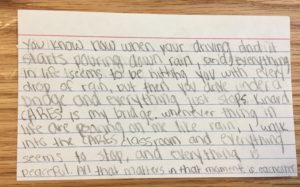 You know how when your driving and it
starts pouring down rain, and everything
in life seems to be hitting you with every
drop of rain, but then you drive under a
bridge and everything just stops. Kinard
CARES is my bridge, whenever thing in
life are pouring on me like rain, I walk
into the CARES classroom and everything
seems to stop, and everything is
peaceful. All that matters in that moment is eachother